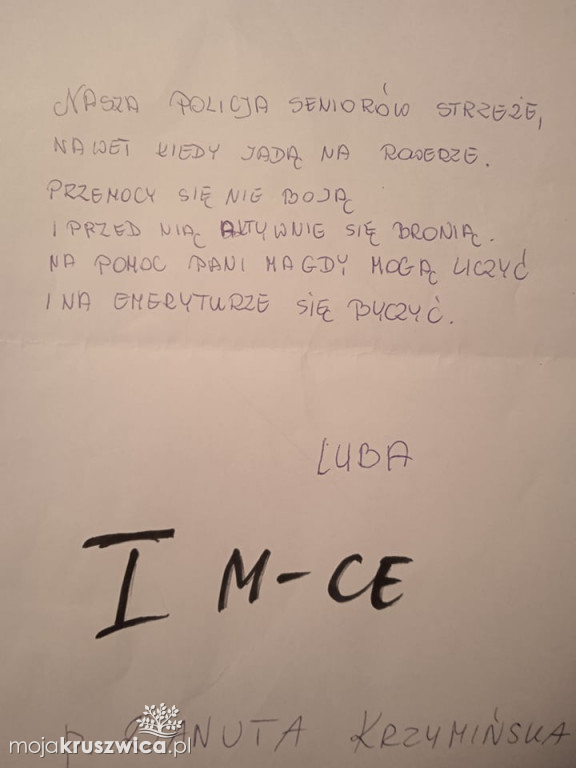 NASZA POLICJA SENIORÓW STRZEŻE,
NAWET KIEDY JADĄ NA ROWERZE.
PRZEMOCY SIĘ NIE BOJĄ
I PRZED NIĄ AKTYWNIE SIĘ BRONIĄ.
NA POMOC PANI MAGDY MOGĄ LICZYĆ
I NA EMERYTURZE SIĘ BYCZYĆ.
LUBA
I M-CE
P DANUTA KRZYMIŃSKA
mojakruszwica.pl